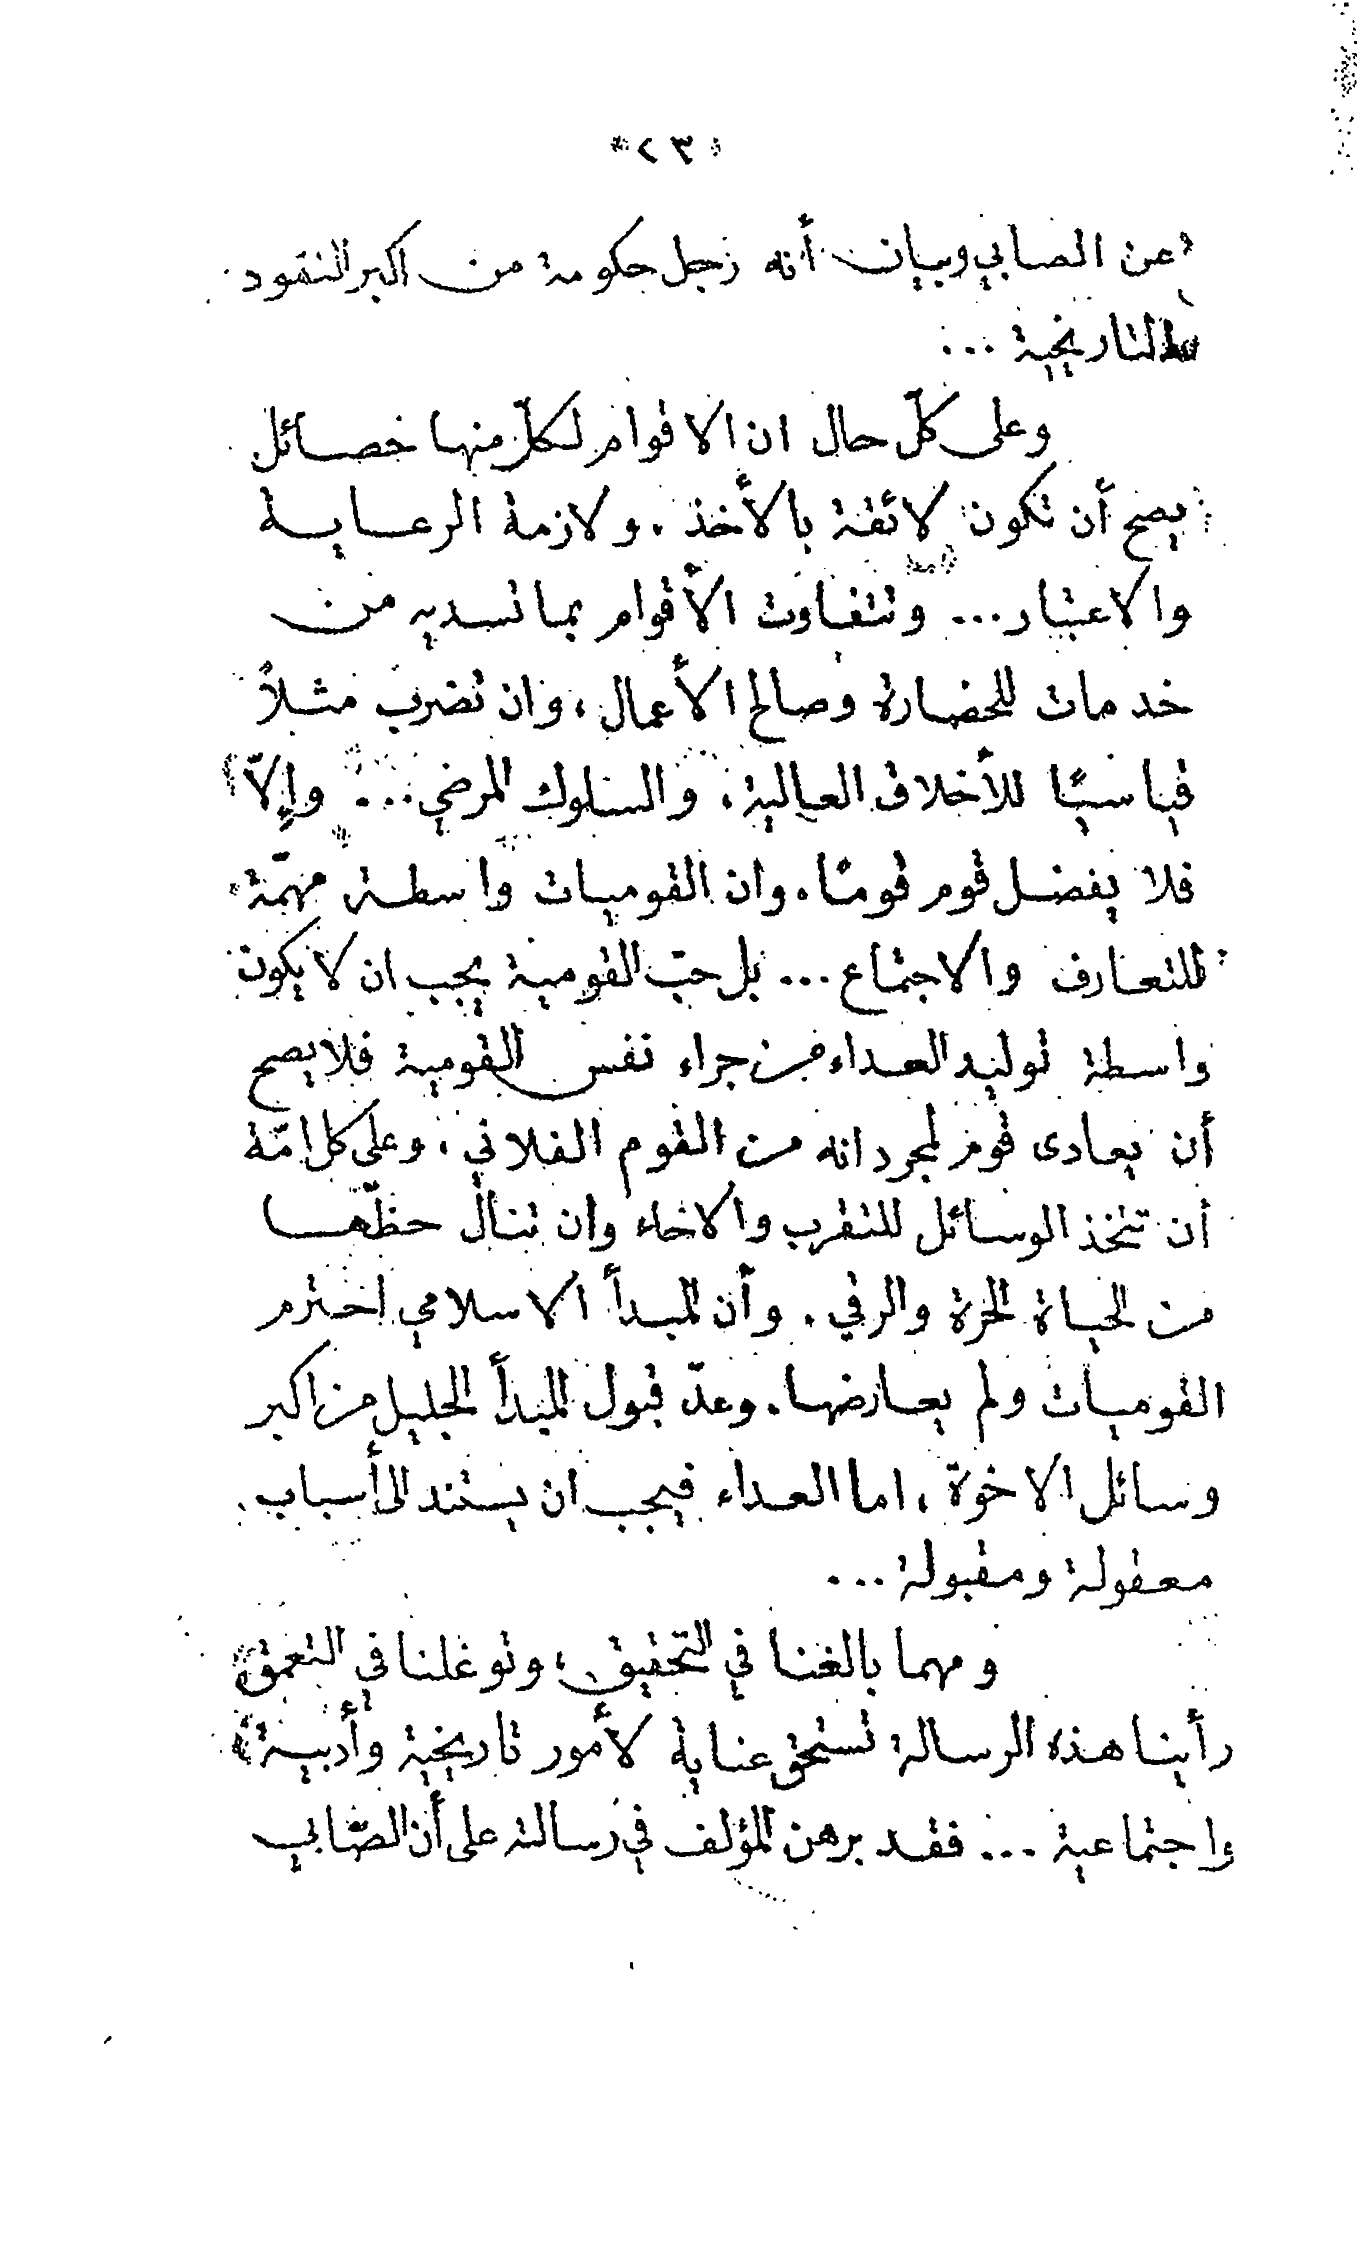 * ٢٣ *
عن الصابي وبيان أنه رجل حكومة من اكبر النقود
التاريخية ...
وعلى كلّ حال ان الاقوام لكلّ منها خصائل
يصح أن تكون لائقة بالأخذ . ولازمة الرعاية
والاعتبار ... وتتفاوت الأقوام بما تسديه من
خدمات للحضارة وصالح الأعمال ، وان تضرب مثلاً
قياسيًا للأخلاق العالية . والسلوك المرضي ... وإلاّ
فلا يفضل قوم قومًا . وان القوميات واسطة مهمّة
للتعارف والاجتماع ... بل حبّ القومية يجب ان لا يكون
واسطة توليد العداء من جراء نفس القومية فلا يصح
أن يعادى قوم لمجرد انه من القوم الفلاني . وعلى كل امّة
أن تتخذ الوسائل للتقرب والاخاء وان تنال حظّها
من الحياة الحرة والرقي . وأن المبدأ الاسلامي احترم
القوميات ولم يعارضها . وعدّ قبول المبدأ الجليل من اكبر
وسائل الاخوّة ، اما العداء فيجب ان يستند الى أسباب
معقولة ومقبولة ...
ومهما بالغنا في التحقيق ، وتوغلنا في التعمق
رأينا هذه الرسالة تستحق عناية لأمور تاريخية وأدبية
واجتماعية ... فقد برهن المؤلف في رسالته على أن الصّابي